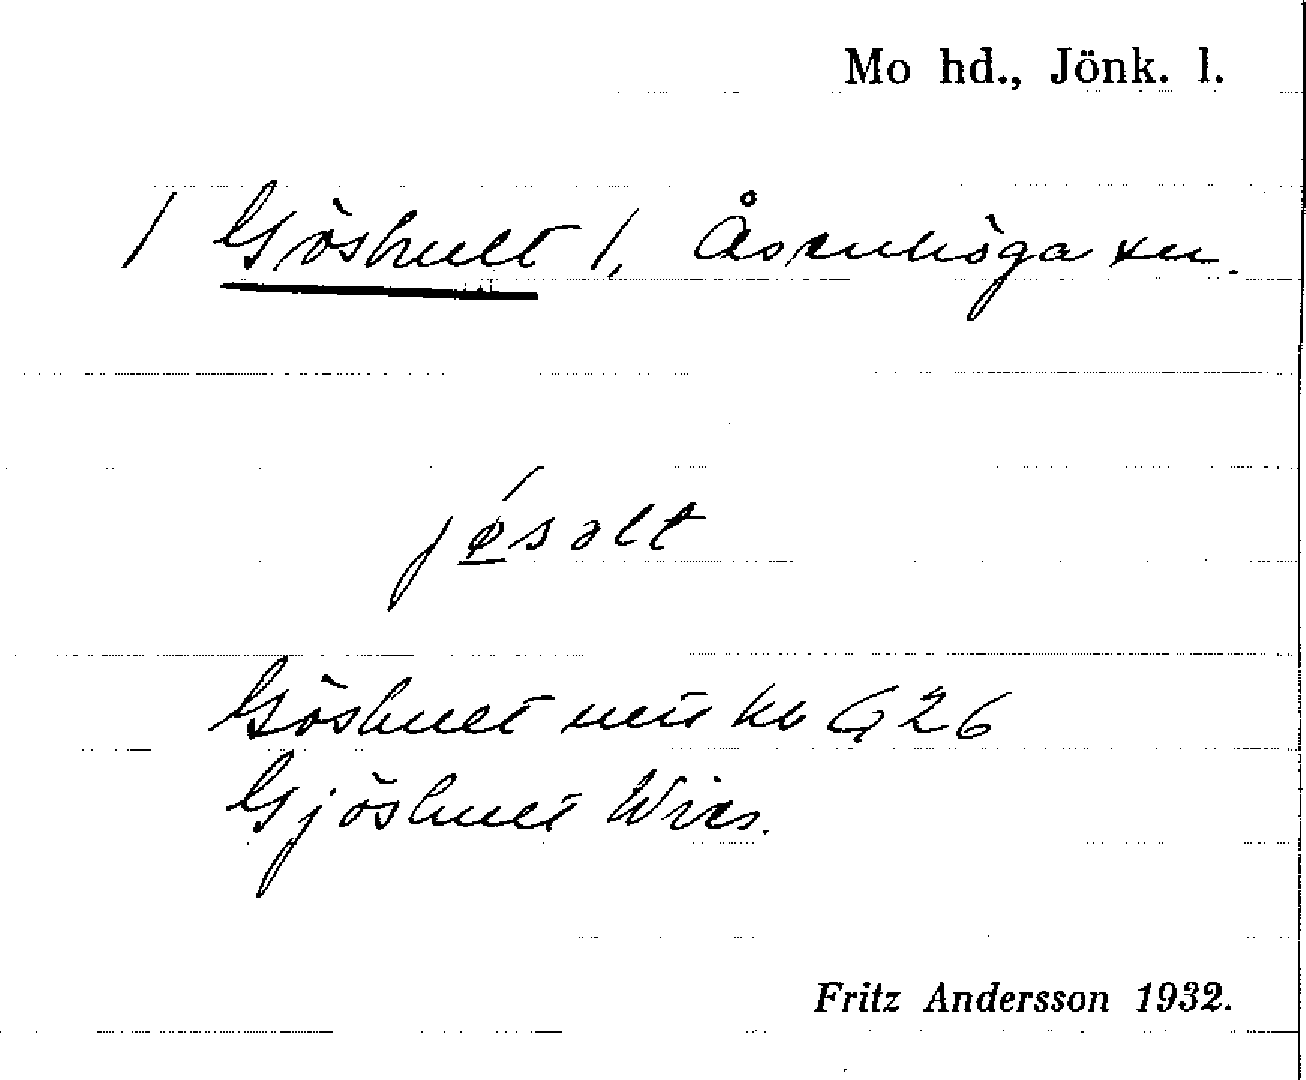 Mo hd., Jönk. l.
/ Göshult /, Åsenhöga sn.
jøsalt
Göshult utt kb C, 26
Gjöshult Wies.
Fritz Andersson 1932.